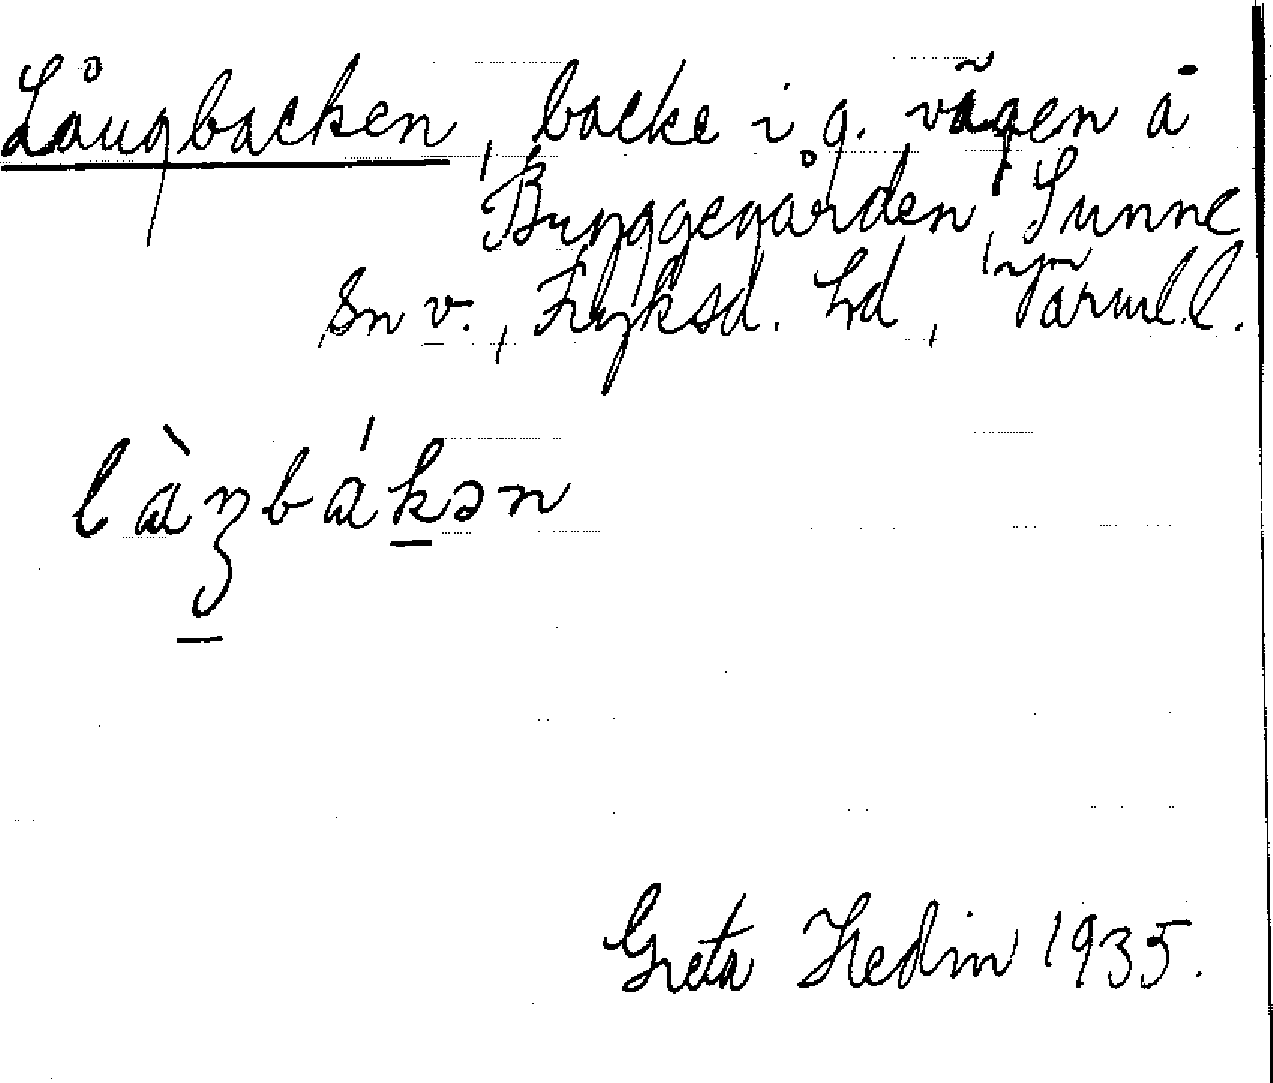 Långbacken, backe i g. vägen å
Bryggegården, Sunne
sn v., Fryksd. hd, Värml. l.
làŋbákən
Greta Hedin 1935.